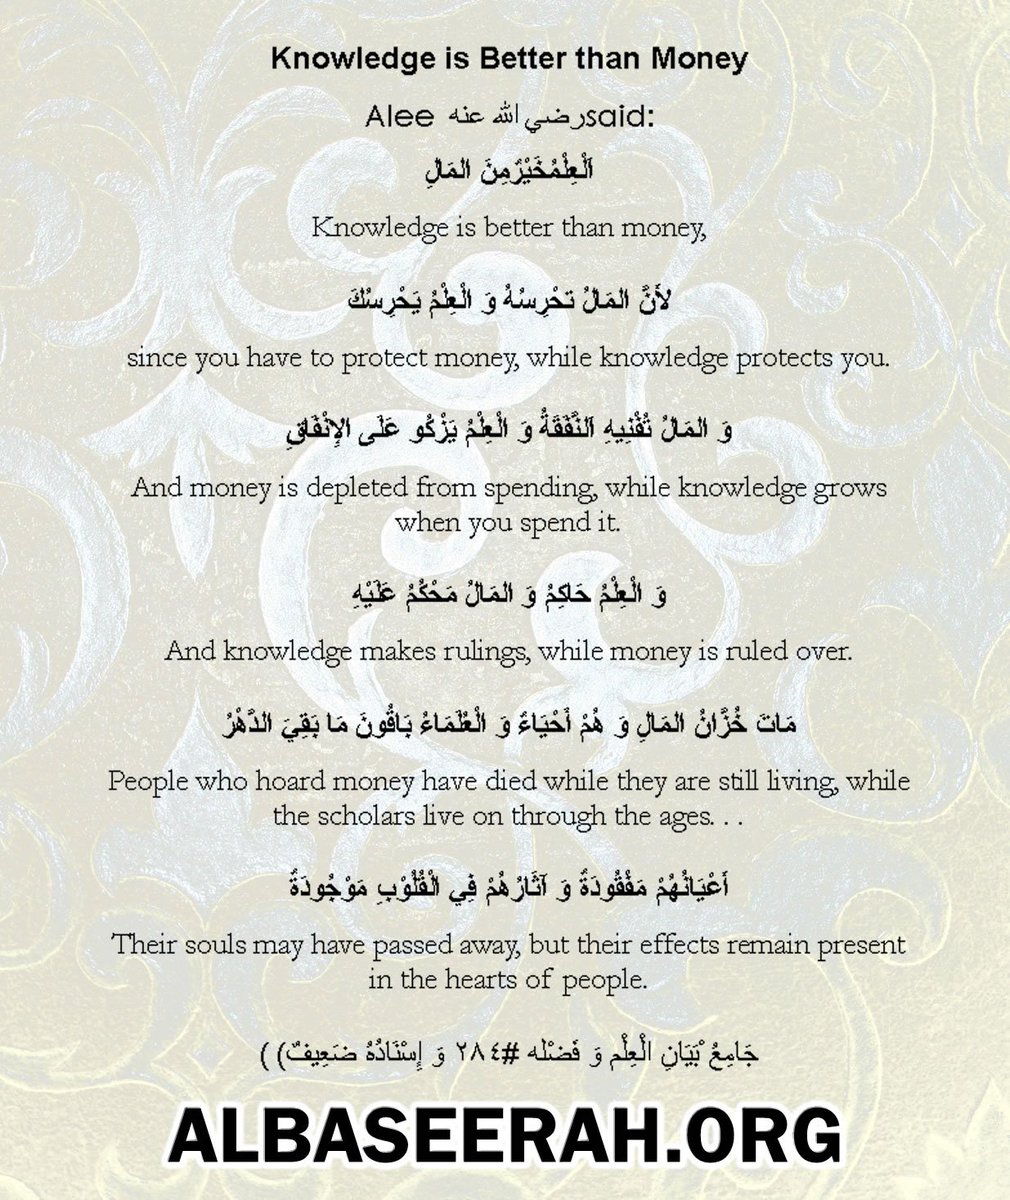 Knowledge is Better than Money
Alee رضي الله عنه said:
اَلْعِلْمُخَيْرٌمِنَ المَالِ
Knowledge is better than money,
لأَنَّ المَالُ تحْرِسُهُ وَ الْعِلْمُ يَحْرِسُكَ
since you have to protect money, while knowledge protects you.
وَ المَالُ تُفْنِيهِ اَلنَّفَقَةُ وَ الْعِلْمُ يَزْكُو عَلَى الإِنْفَاقِ
And money is depleted from spending, while knowledge grows
when you spend it.
وَ الْعِلْمُ حَاكِمُ وَ المَالُ مَحْكُمُ عَلَيْهِ
And knowledge makes rulings, while money is ruled over.
مَاتَ خُزَّانُ المَالِ وَ هُمْ أَحْيَاءٌ وَ الْعُلَمَاءُ بَاقُونَ مَا بَقِيَ الدَّهْرُ
People who hoard money have died while they are still living, while
the scholars live on through the ages. . .
أَعْيَانُهُمْ مَفْقُودَةٌ وَ آثَارُهُمْ فِي الْقُلُوْبِ مَوْجُودَةٌ
Their souls may have passed away, but their effects remain present
in the hearts of people.
جَامِعُ بْيَانِ الْعِلْم وَ فَضْله #٢٨٤ وَ إِسْنَادُهُ ضَعِيفٌ) (
ALBASEERAH.ORG